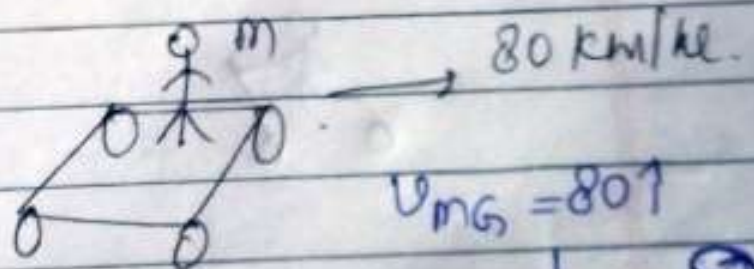 m
80 km/hr.
v_{mG} = 80î